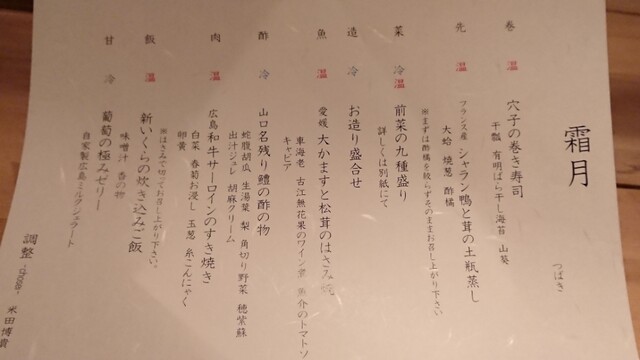 霜月
つばき
巻 温 穴子の巻き寿司
干瓢 有明ばら干し海苔 山葵
先 温 フランス産 シャラン鴨と茸の土瓶蒸し
大蛤 焼葱 酢橘
※まずは酢橘を絞らずそのままお召し上がり下さい
菜 冷温 前菜の九種盛り
詳しくは別紙にて
造 冷 お造り盛合せ
魚 温 愛媛 大かますと松茸のはさみ焼
車海老 古江無花果のワイン煮 魚介のトマトソ
キャビア
酢 冷 山口名残り鱧の酢の物
蛇腹胡瓜 生湯葉 梨 角切り野菜 穂紫蘇
出汁ジュレ 胡麻クリーム
肉 温 広島 和牛サーロインのすき焼き
白菜 春菊お浸し 玉葱 糸こんにゃく
卵黄
※はさみで切ってお召し上がり下さい。
飯 温 新いくらの炊き込みご飯
味噌汁 香の物
甘 冷 葡萄の極みゼリー
自家製広島ミルクジェラート
調整 -chosei- 米田博貴